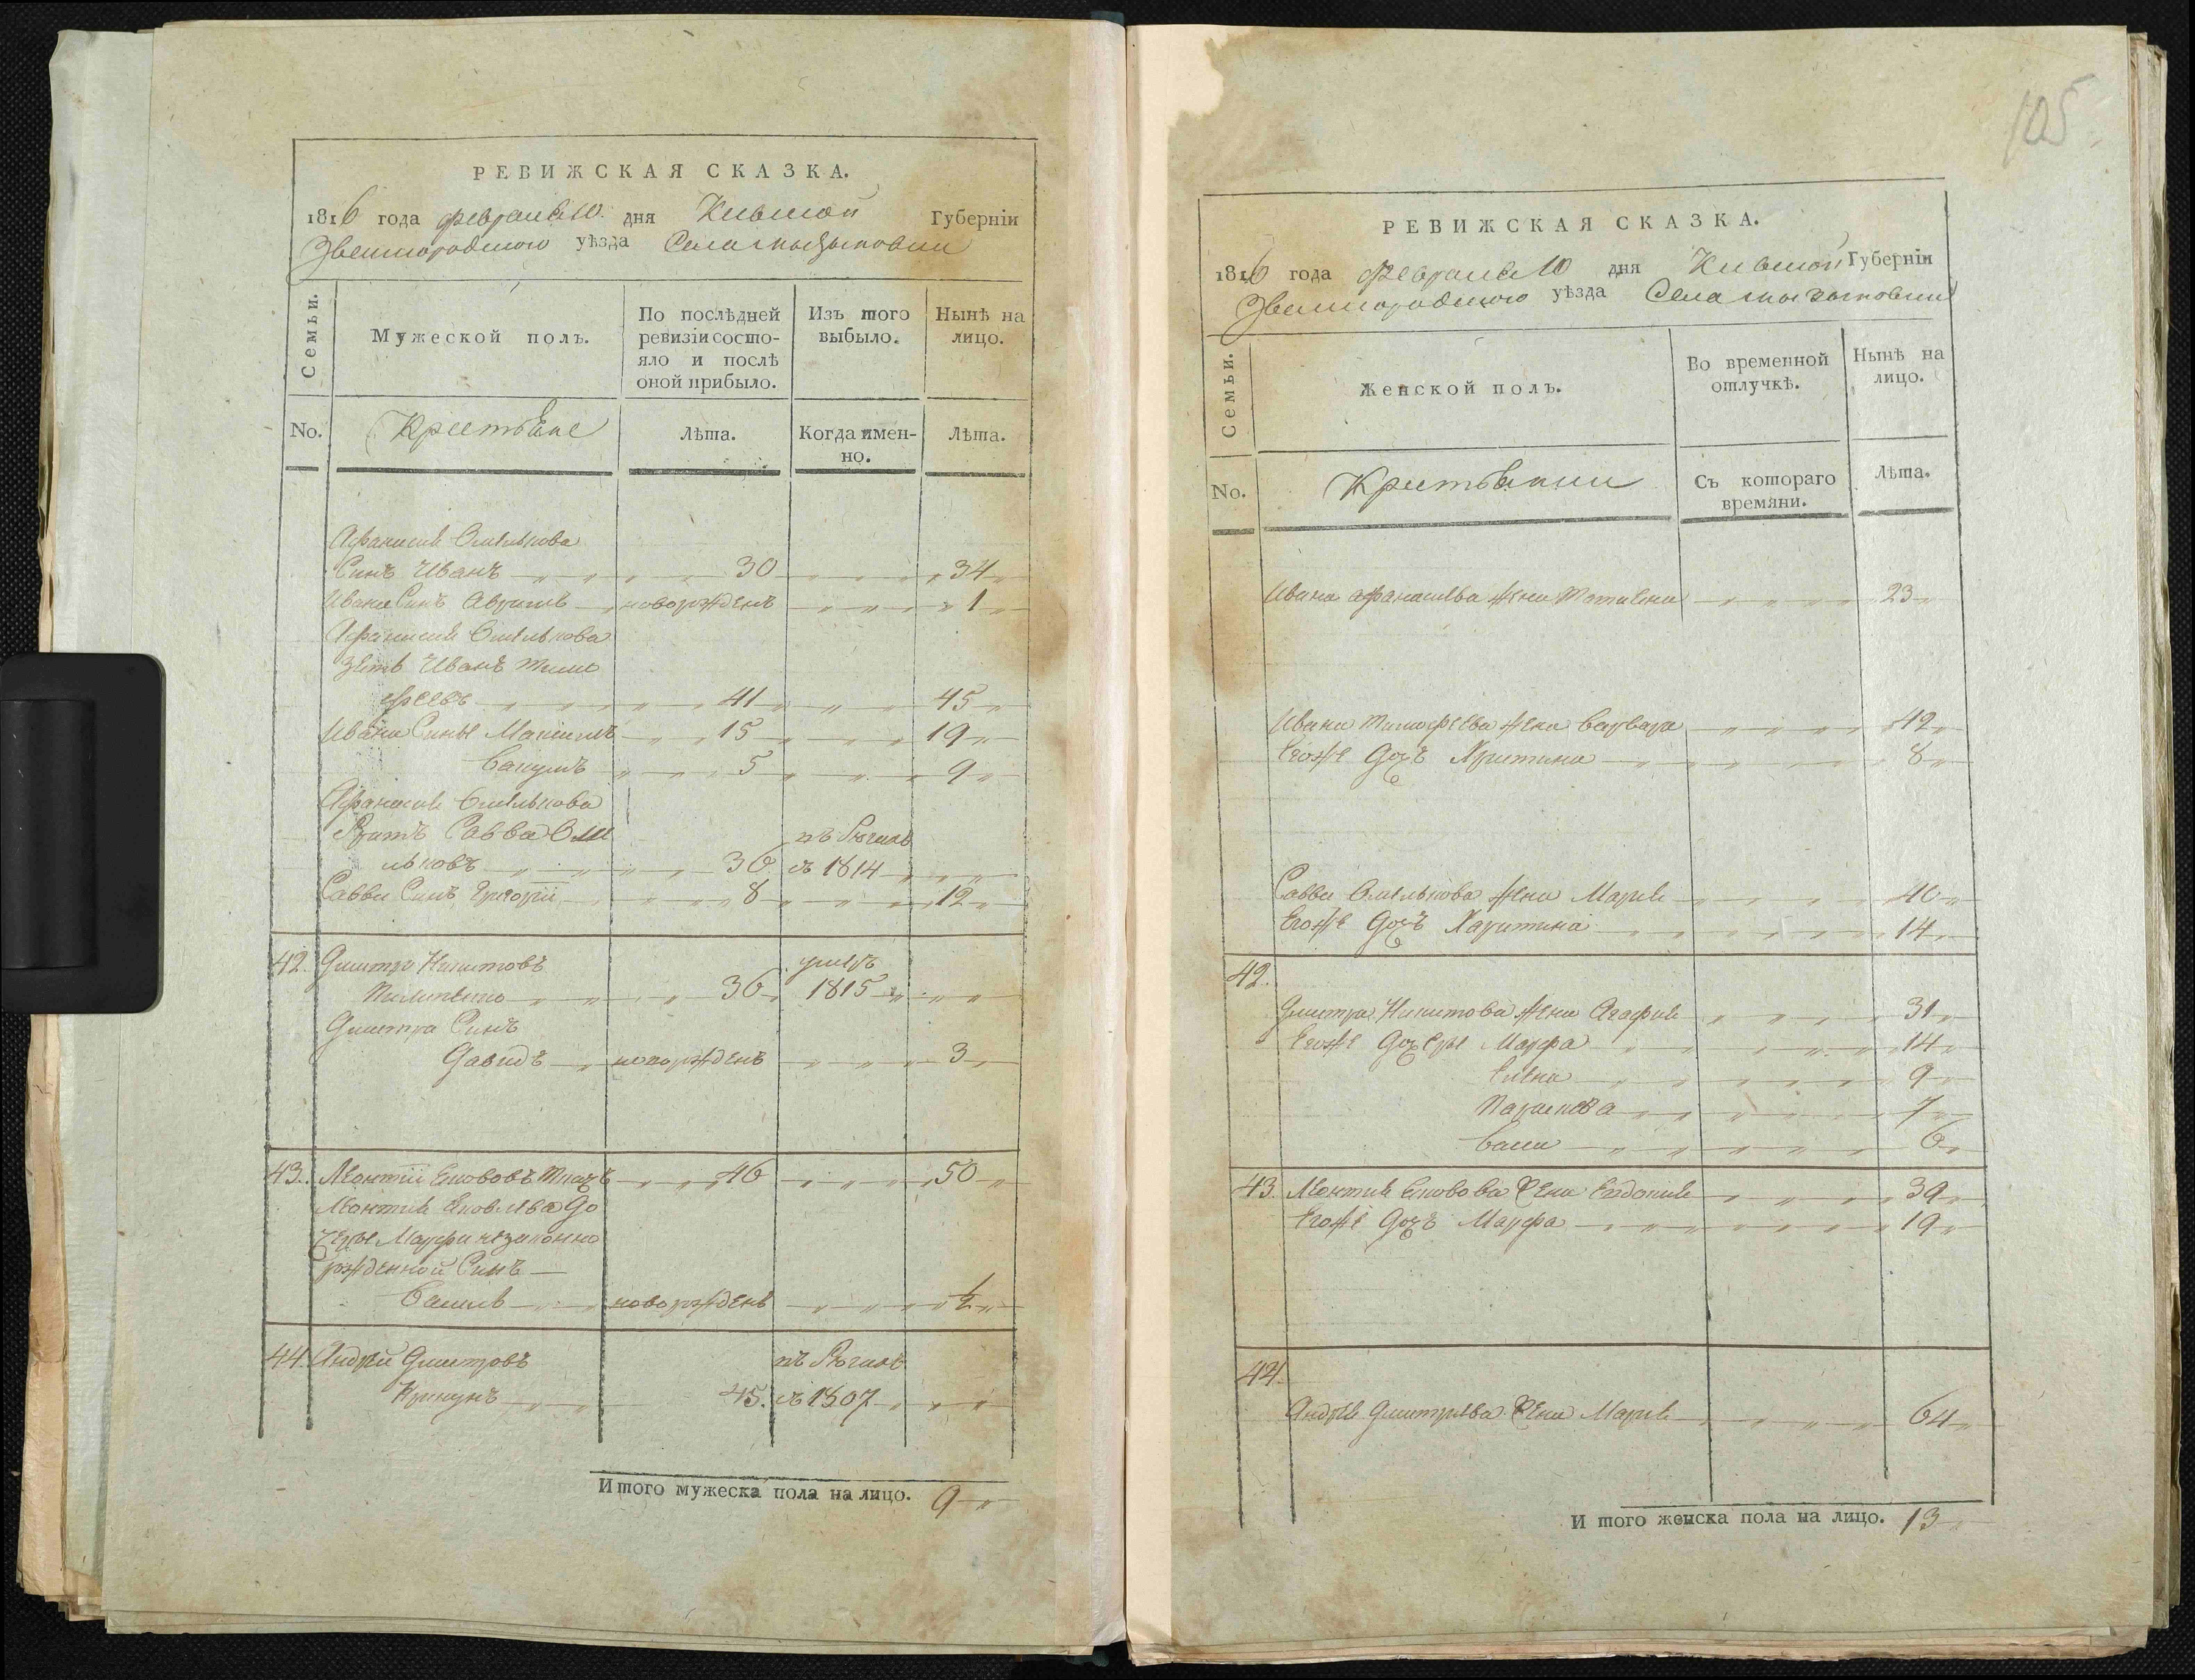 РЕВИЖСКАЯ СКАЗКА.
1816 года февраля 10. дня Киевской Губерніи
Звенигородского уѣзда Села
Семьи.
Мужеской полъ.
По послѣдней ревизіи состояло и послѣ оной прибыло.
Изъ того выбыло.
Нынѣ на лицо.
No.
Крестьяне
Лѣта.
Когда именно.
Лѣта.
Афанасия Омелькова
Синъ Иванъ 30 34
Ивана Синъ Аврамъ новорожденъ 1
Афанасия Омелькова
Зять Иванъ Тимо
феевъ 41 45
Ивана Сины Максимъ 15 19
Вакумъ 5 9
Афанасия Омелькова
Братъ Савва Оме
льковъ 36 въ 1814
Саввы Синъ Григорій 8 12
42. Дмитро Никитовъ умеръ
36 1815
Дмитра Синъ
Давидъ новорожденъ 3
43. Леонтій Якововъ Ткачъ 46 50
Леонтия Яковлева До
чери Марфи незаконно
рожденной Синъ
Василь новорожденъ 1/2
44. Андрей Дмитровъ
Крикунъ 45. въ 1807
Итого мужеска пола на лицо. 9
105
РЕВИЖСКАЯ СКАЗКА.
1816 года февраля 10 дня Киевской Губерніи
Звенигородского уѣзда Села
Семьи.
Женской полъ.
Во временной отлучкѣ.
Нынѣ на лицо.
No.
Крестьянки
Съ котораго времяни.
Лѣта.
Ивана Афанасиева жена Татияна 23
Ивана Тимофеева жена Варвара 42
Егоже Дочь Христина 8
Саввы Омелькова жена Мария 40
Егоже Дочь Харитина 14
42.
Дмитра Никитова жена Агафия 31
Егоже Дочери Марфа 14
Елена 9
Параскева 7
Васса 6
43. Леонтия Яковова жена Евдокия 39
Егоже Дочь Марфа 19
44.
Андрея Дмитриева жена Мария 64
И того женска пола на лицо. 13